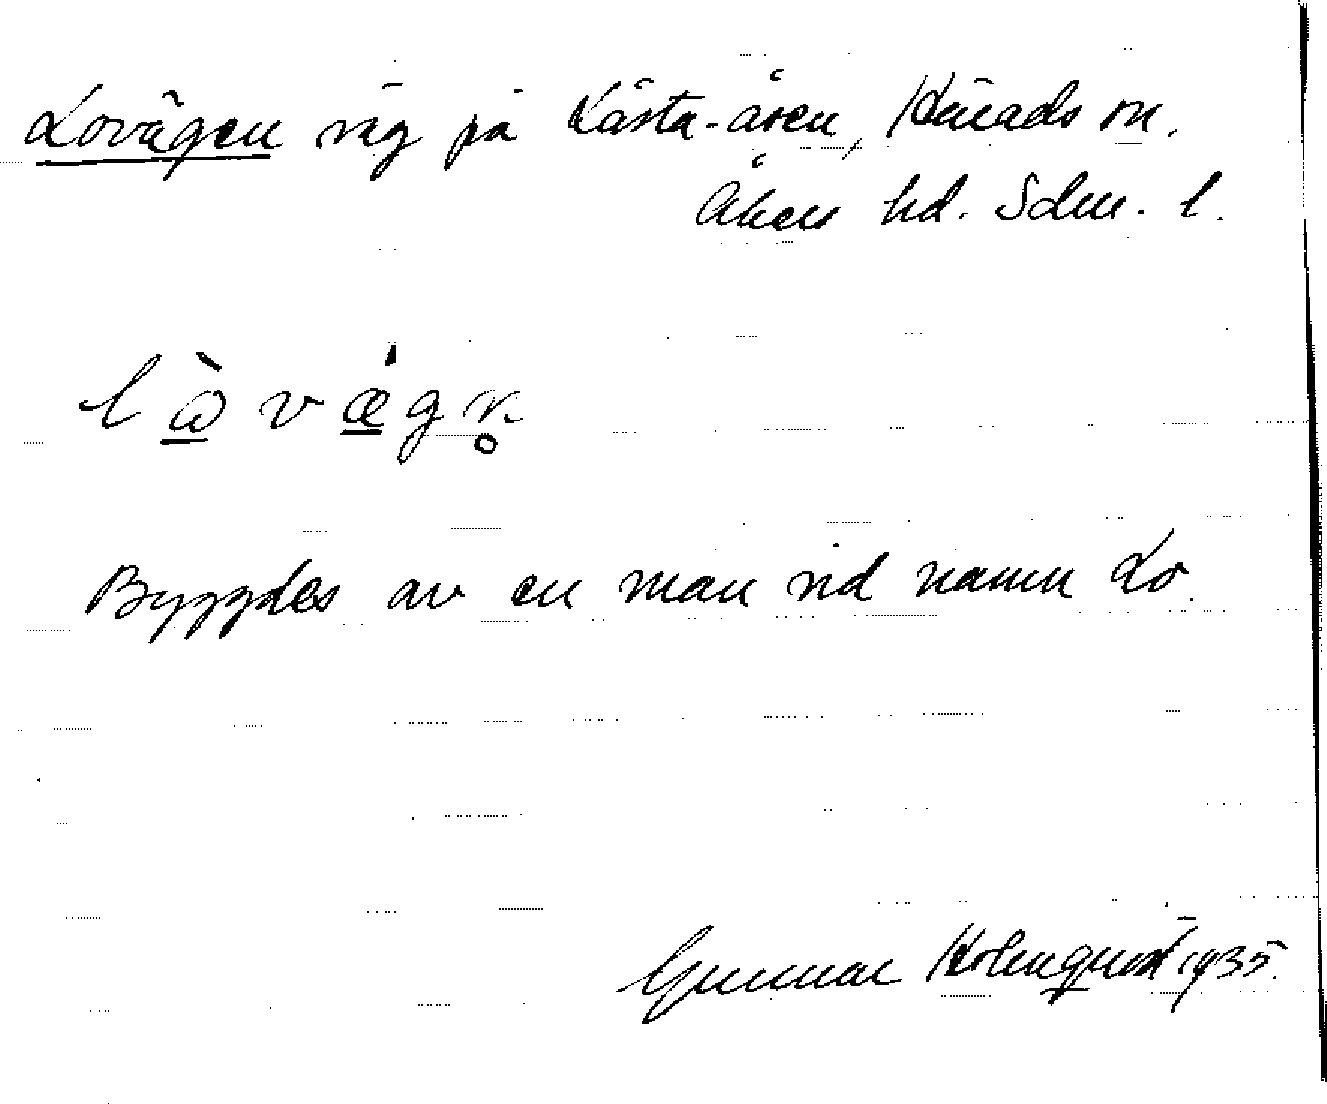 Lovägen väg på Kårsta-åsen, Härads sn.
Åkers hd. Sdm. l.
l ὼ v ǽ g n̥
Byggdes av en man vid namn Lo.
Gunnar Holmqvist 1935.